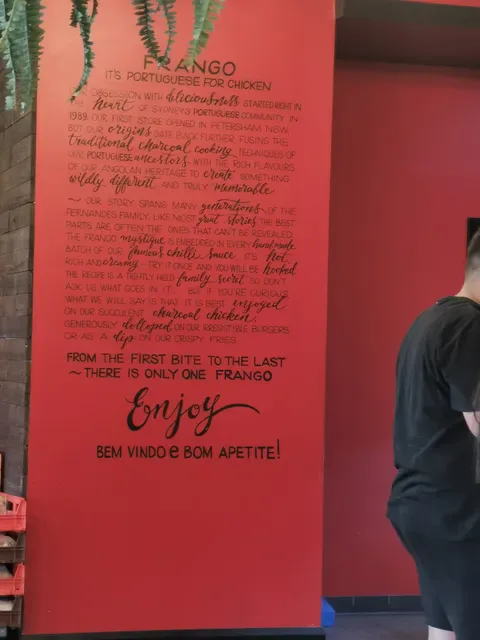 FRANGO
IT'S PORTUGUESE FOR CHICKEN
OBSESSION WITH deliciousness STARTED RIGHT IN
heart OF SYDNEY'S PORTUGUESE COMMUNITY IN
1989. OUR FIRST STORE OPENED IN PETERSHAM NSW
BUT OUR origins DATE BACK FURTHER, FUSING THE
traditional charcoal cooking TECHNIQUES OF
OUR PORTUGUESE ancestors WITH THE RICH FLAVOURS
OF OUR ANGOLAN HERITAGE TO create SOMETHING
wildly different AND TRULY memorable
~ OUR STORY SPANS MANY generations OF THE
FERNANDES FAMILY. LIKE MOST great stories THE BEST
PARTS ARE OFTEN THE ONES THAT CAN'T BE REVEALED.
THE FRANGO mystique IS EMBEDDED IN EVERY handmade
BATCH OF OUR famous chilli sauce. IT'S hot,
RICH AND creamy - TRY IT ONCE AND YOU WILL BE hooked
THE RECIPE IS A TIGHTLY HELD family secret SO DON'T
ASK US WHAT GOES IN IT. BUT IF YOU'RE CURIOUS
WHAT WE WILL SAY IS THAT IT IS BEST enjoyed
ON OUR SUCCULENT charcoal chicken,
GENEROUSLY dolloped ON OUR IRRESISTIBLE BURGERS
OR AS A dip ON OUR CRISPY FRIES.
FROM THE FIRST BITE TO THE LAST
~ THERE IS ONLY ONE FRANGO
Enjoy
BEM VINDO e BOM APETITE!